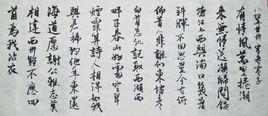 八聲甘州 寄參寥子
有情風萬里捲潮
來無情送潮歸問錢
塘江上西興浦口幾度
斜暉不用思量今古俯
仰昔人非誰似東坡老
白首忘機記取西湖西
畔正春山好處空翠
煙霏算詩人相得如我
與君稀約他年東還
海道愿謝公雅志莫
相違西州路不應回
首為我沾衣